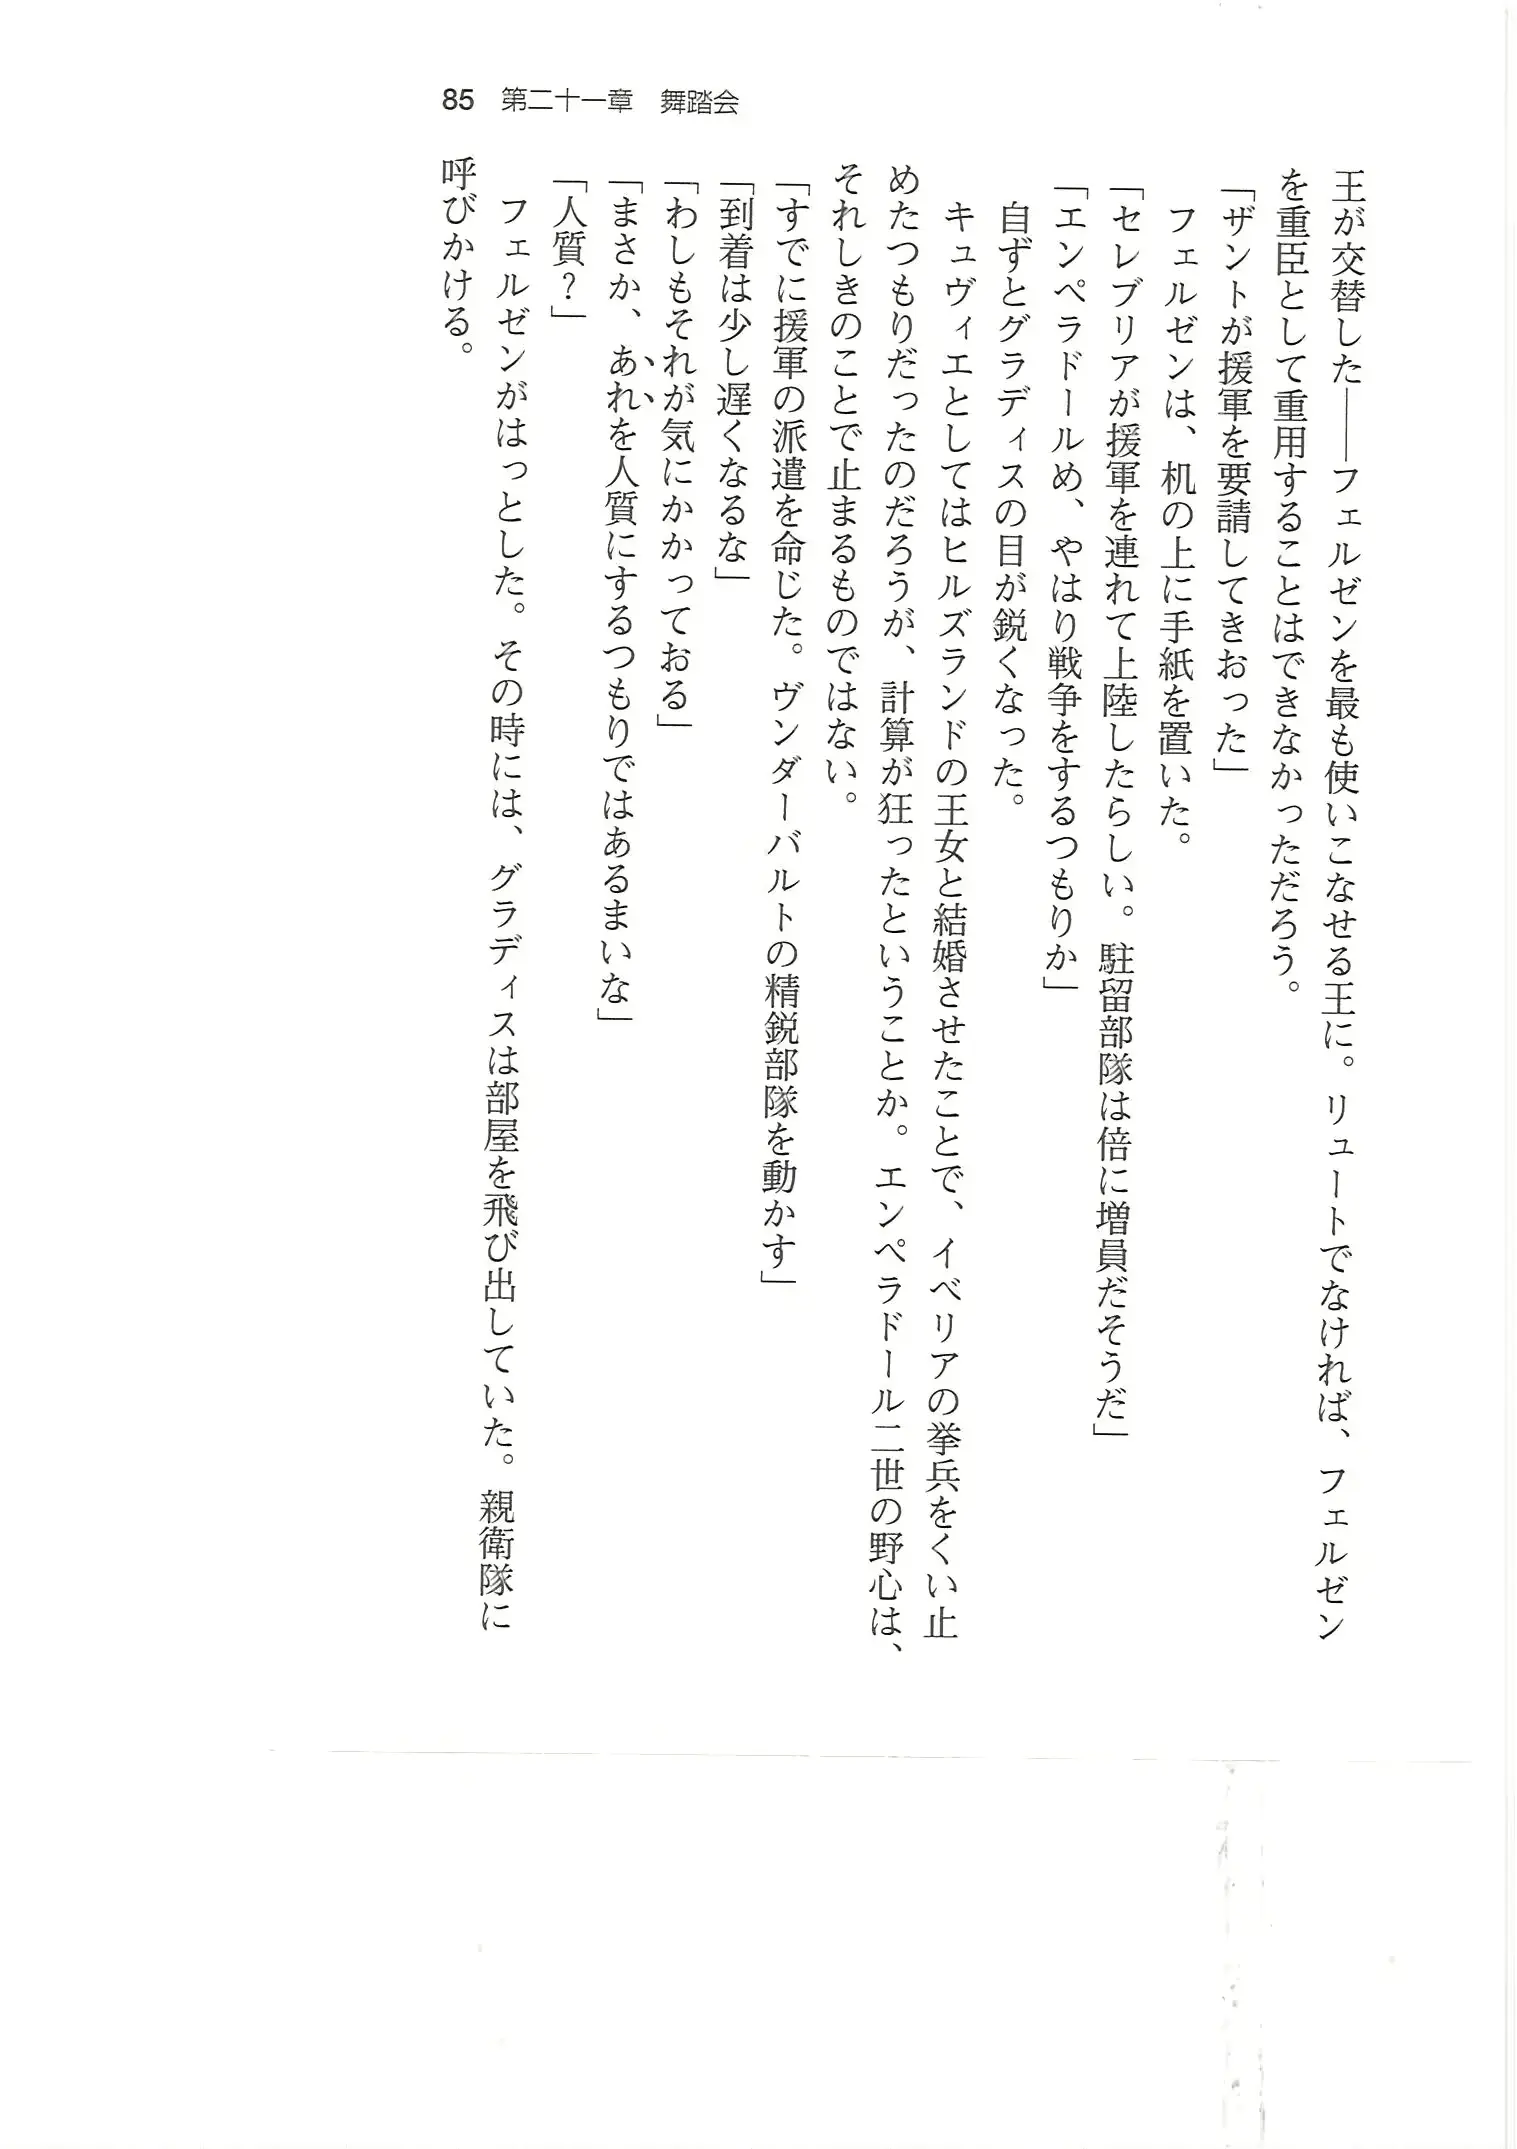 85 第二十一章 舞踏会
王が交替した――フェルゼンを最も使いこなせる王に。リュートでなければ、フェルゼン
を重臣として重用することはできなかっただろう。
「ザントが援軍を要請してきおった」
フェルゼンは、机の上に手紙を置いた。
「セレブリアが援軍を連れて上陸したらしい。駐留部隊は倍に増員だそうだ」
「エンペラドールめ、やはり戦争をするつもりか」
自ずとグラディスの目が鋭くなった。
キュヴィエとしてはヒルズランドの王女と結婚させたことで、イベリアの挙兵をくい止
めたつもりだったのだろうが、計算が狂ったということか。エンペラドール二世の野心は、
それしきのことで止まるものではない。
「すでに援軍の派遣を命じた。ヴンダーバルトの精鋭部隊を動かす」
「到着は少し遅くなるな」
「わしもそれが気にかかっておる」
「まさか、あれを人質にするつもりではあるまいな」
「人質？」
フェルゼンがはっとした。その時には、グラディスは部屋を飛び出していた。親衛隊に
呼びかける。